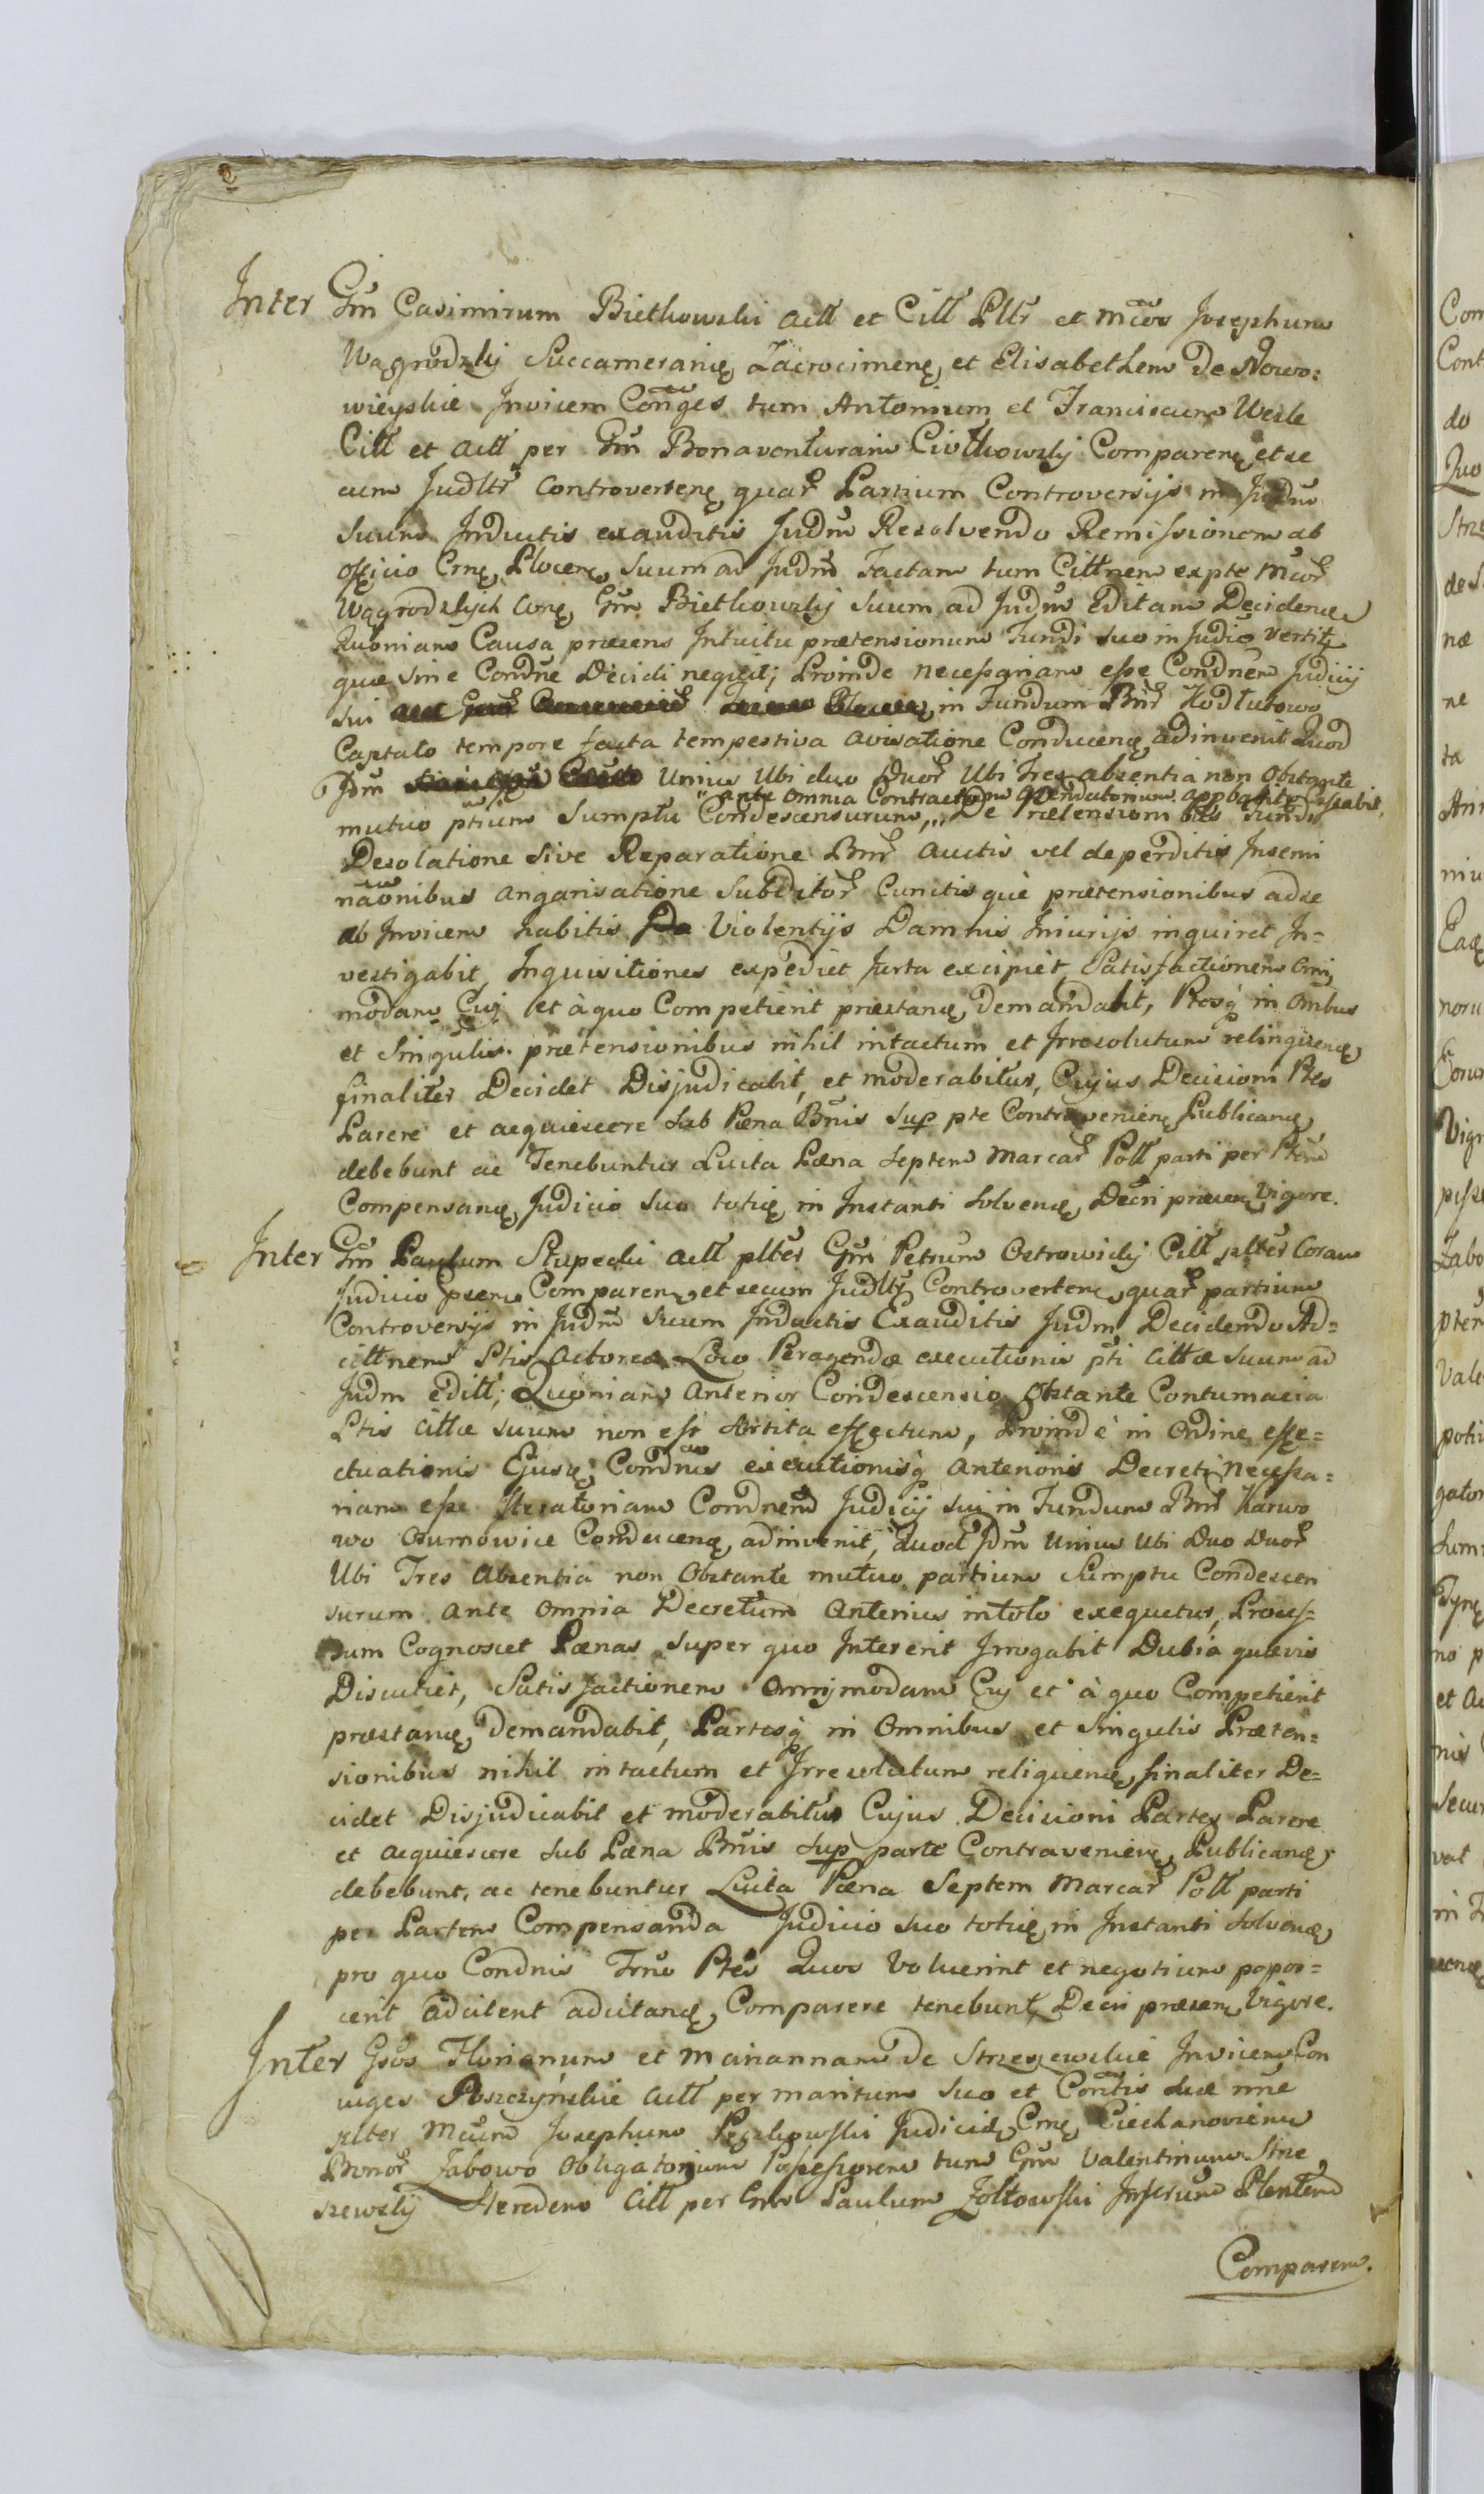 Inter Gm Casimirum Bietkowski actt et Citt Pltr et Mcos Josephum
Wągrodzkij Succameranię Zacrocimenę, et Elisabethem De Nowo:
wieyskie Invicem Conges tum Antonium et Franciscum Wesle
Citt et actt per Gm Bonaventuram Ciotkowskij Comparenę et se
cum Judltr Controvertenę quar Partium Controversijs in Judm
Suum Inductis exauditis Judm Resolvendo Remissionem ab
officio Crnę Plocenę Suum ad Judm Factam tum Cittnem expte Mcor
Wągrodzkich conę Gm Bietkowskij Suum ad Judm Editam Decidendę
Quoniam Causa præsens Intuitu prætensionum Fundi suo in Judio vertitr
quæ Sine Condne Decidi nequit; Proinde necessariam esse Condnem Judicij
Sui in Fundum Bnr Kodlutowo
Captato tempore facta tempestiva avisatione Conducenę, adinvenit Quod
Jdm Unius Ubi duo Duor Ubi Tres absentia non Obstante
ante omnia Contractum Arendatorium
mutuo ptium Sumptu Condescensurum, De Prætensionibus Fundi
Desolatione Sive Reparatione Bnr auctis vel deperditis Insemi
naonibus angarisatione Subditor Cunctisque prætensionibus adse
ab Invicem habitis Violentijs Damnis Injurijs inquiret In=
vestigabit, Inquisitiones expediet Jurta excipiet Satisfactionem Omi
modam Cuj et à quo Competierit præstanę, demandabit, Ptesq in Omibus
et Singulis prætensionibus nihil intactum et Irresolutum relinquenę,
finaliter Decidet Disjudicabit, et moderabitur, Cujus Decisioni Ptes
Parere et acquiescere Sub Pæna Bnis Sup pte Contravenienę Publicanę
debebunt ac Tenebuntur Luita Pæna Septem Marcar Poll parti per Ptem
Compensanę, Judicio Suo totię, in Instanti Solvenę, Decri præsen Vigore.
Inter Gm Paulum Stupecki actt plter Gm Petrum Ostrowickij Citt plter Coram
Judicio psenę Comparenę, et secum Judltr Controvertenę, quar partium
Controversijs in Judm Suum Inductis Exauditis Judm Decidendo Ad=
cittnem Ptis Actoreæ Loco Peragendæ executionis pti cittæ Suum ad
Judm editt; Quoniam Anterior Condescensio Obstante Contumacia
Ptis cittæ Suum non est Sortita effectum, Proindè in Ordine effe=
ctuationis Ejusę, Condnis executionisq Anterioris Decreti Necessa=
riam esse Iteratoriam Condnem Judicij Sui in Fundum Bnr Karwo
wo Osumowice Conducenę, adinvenit, Quod Jdm Unius Ubi Duo Duor
Ubi Tres Absentia non Obstante mutuo partium Sumptu Condescen
surum ante omnia Decretum Anterius intoto exequetur, Proces=
sum Cognoscet Pænas Super quo Intererit Irrogabit Dubia quævis
Discutiet, Satisfactionem Omnijmodam Cuj et à quo Competierit
præstanę, demandabit, Partesq in Omnibus et Singulis Præten=
sionibus nihil intactum et Irresolutum reliquenę, finaliter De=
cidet Disjudicabit et moderabitur Cujus Decisioni Partes Parere
et Acquiescere Sub Pæna Bnis Sup parte Contravenienę, Publicanę,
debebunt, ac tenebuntur Luita Pæna Septem Marcar Poll parti
per Partem Compensanda Judicio Suo totię, in Instanti Solvenę,
pro quo Condnis Trno Ptes Quos Voluerint et negotium popos=
cerit adcitent adcitanę, Comparere tenebunt, Decri præsen, Vigore.
Inter Gsos Florianum et Mariannam de Strzeszewskie Invicem Con
iuges Roszczyńskie actt per maritum Suo et Contis suæ nne
plter Mcum Josephum Pęszkowski Judicię, Crnę, Ciechanovienę
Bonor Zabowo Obligatorium Possessorem tum Gm Valentinum Strze
szewskij Heredem Citt per Gm Paulum Żołtowski Plentem
Comparenę.